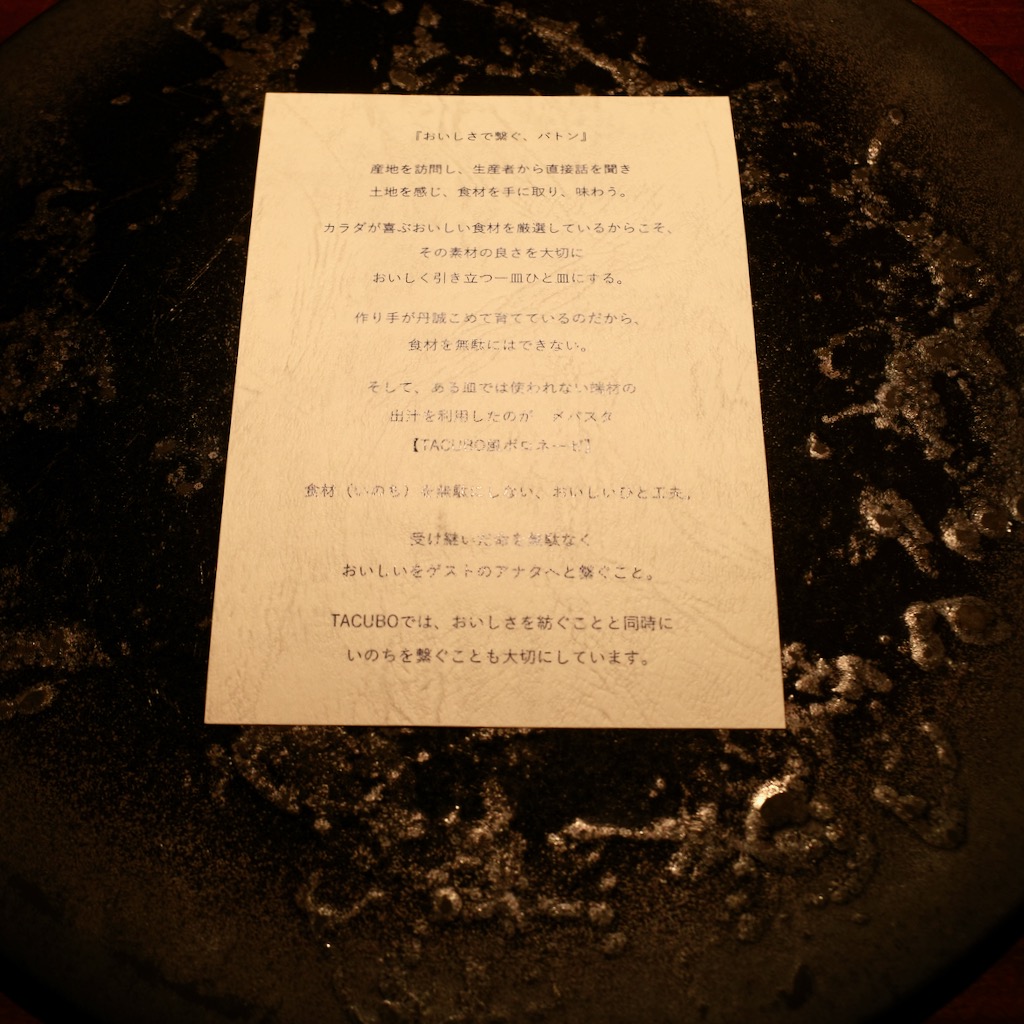 『おいしさで繋ぐ、バトン』
産地を訪問し、生産者から直接話を聞き
土地を感じ、食材を手に取り、味わう。
カラダが喜ぶおいしい食材を厳選しているからこそ、
その素材の良さを大切に
おいしく引き立つ一皿ひと皿にする。
作り手が丹誠こめて育てているのだから、
食材を無駄にはできない。
そして、ある皿では使われない端材の
出汁を利用したのが〆パスタ
【TACUBO風ボロネーゼ】
食材（いのち）を無駄にしない、おいしいひと工夫。
受け継いだ命を無駄なく
おいしいをゲストのアナタへと繋ぐこと。
TACUBOでは、おいしさを紡ぐことと同時に
いのちを繋ぐことも大切にしています。